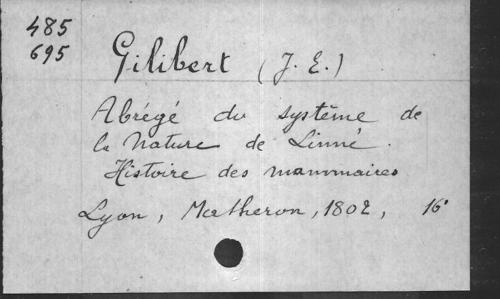 485
695
Gilibert (J. E.)
Abrégé du système de
la Nature de Linné.
Histoire des mammaires
Lyon, Matheron, 1802, 16°